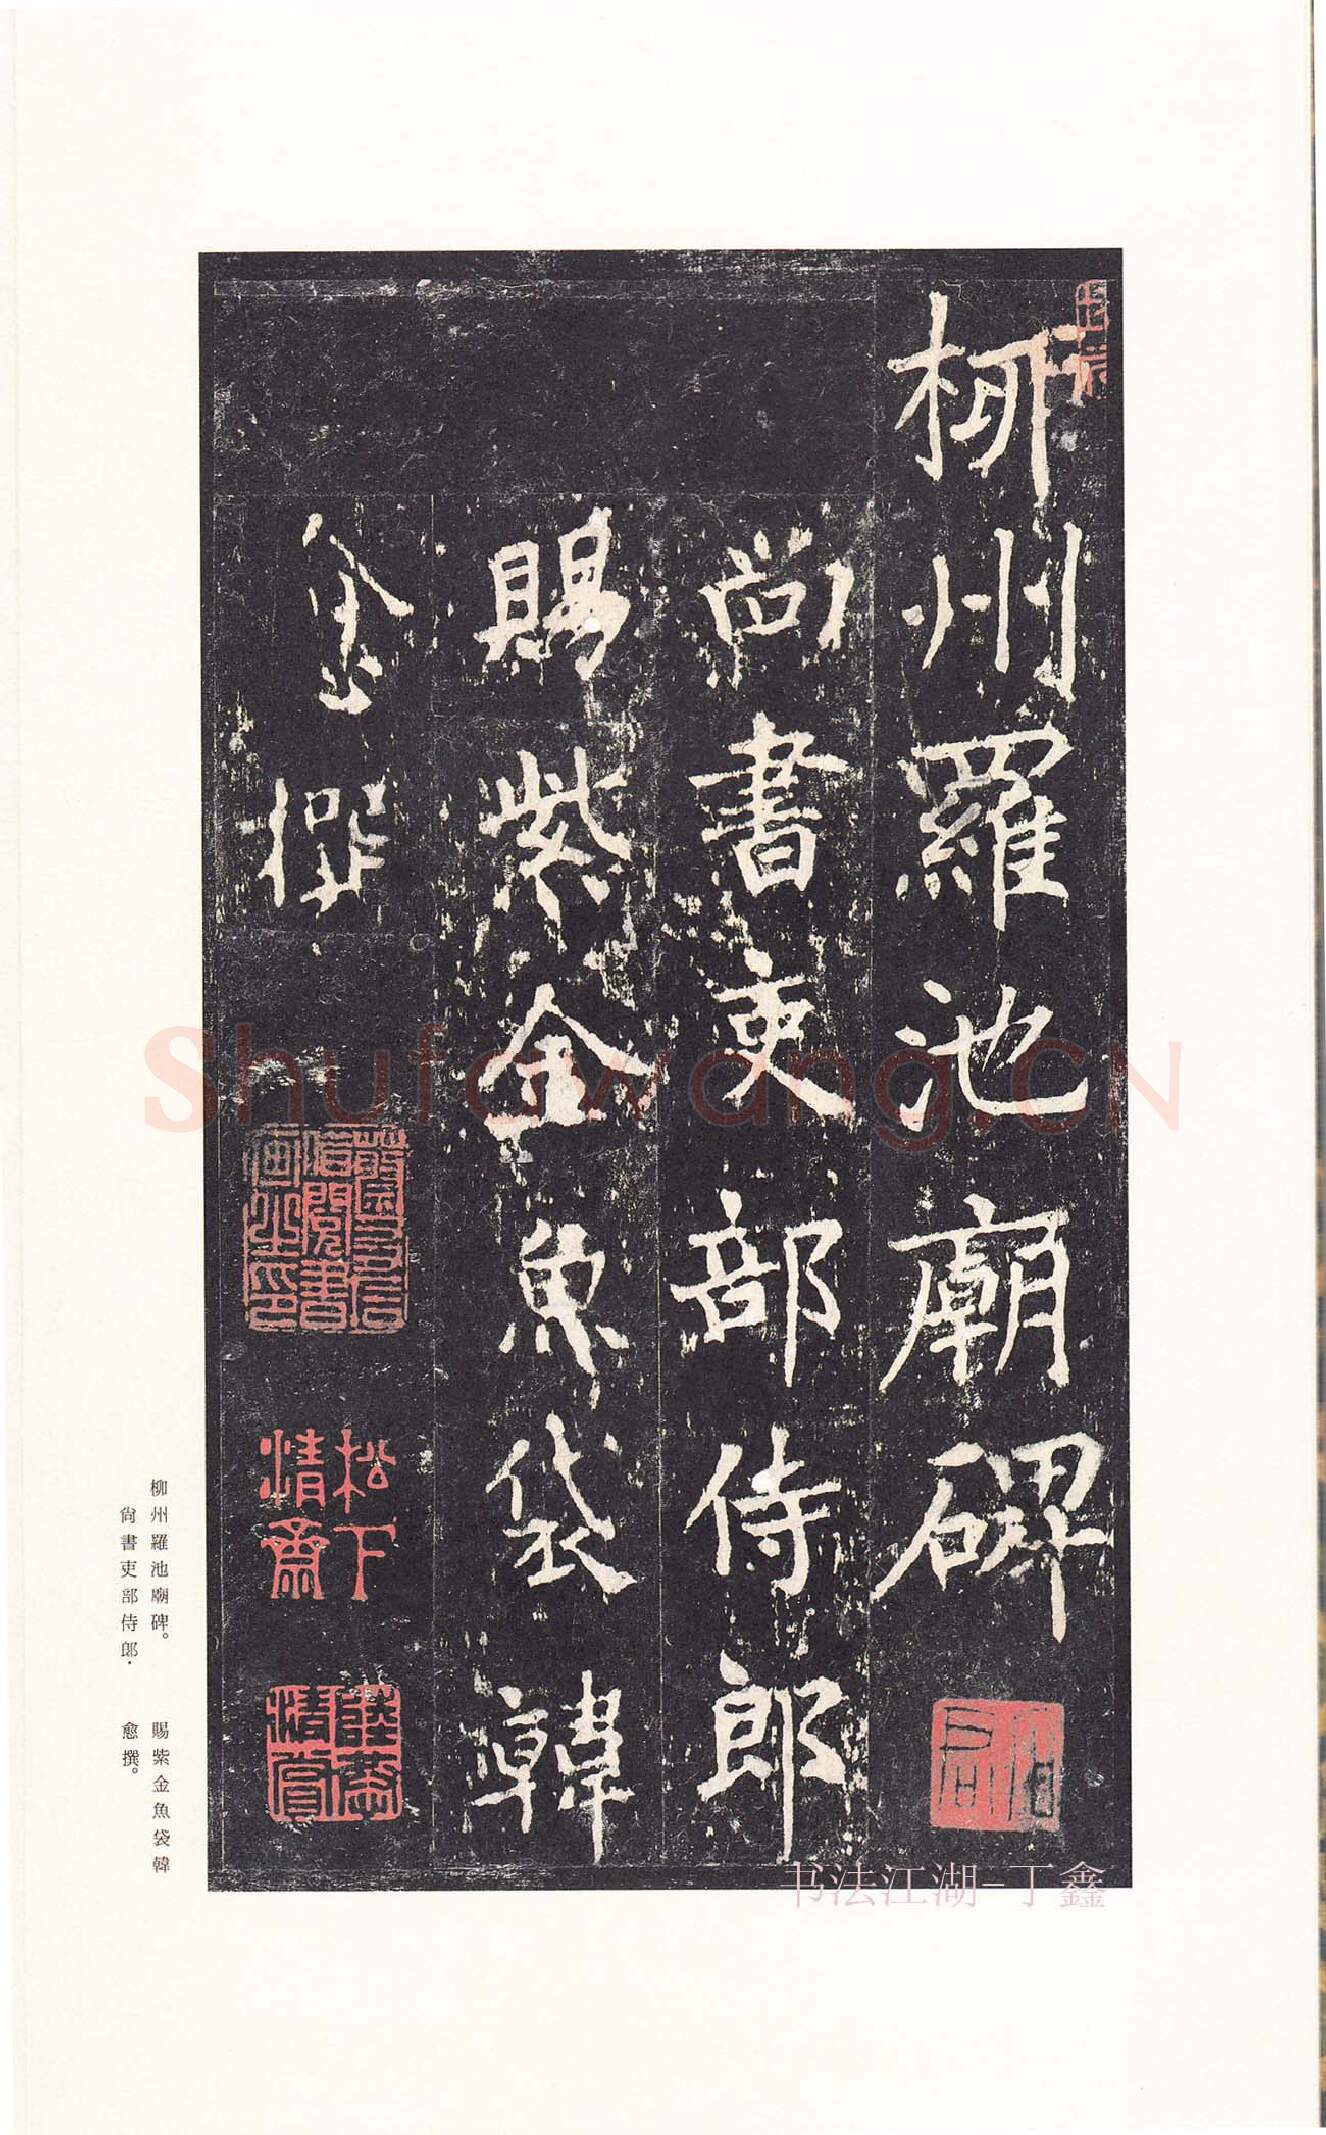 柳州羅池廟碑
尚書吏部侍郎
賜紫金魚袋韓
愈撰
松下
清齋
清賞
柳州羅池廟碑。
尚書吏部侍郎·
賜紫金魚袋韓
愈撰。
Shufawang.CN
书法江湖-丁鑫